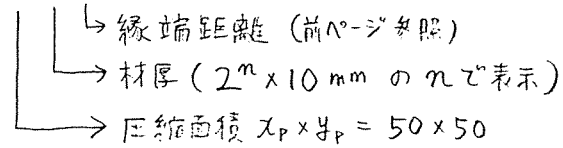 縁端距離 (前ページ参照)
材厚 (2ⁿ×10 mm の n で表示)
圧縮面積 xₚ×yₚ = 50×50